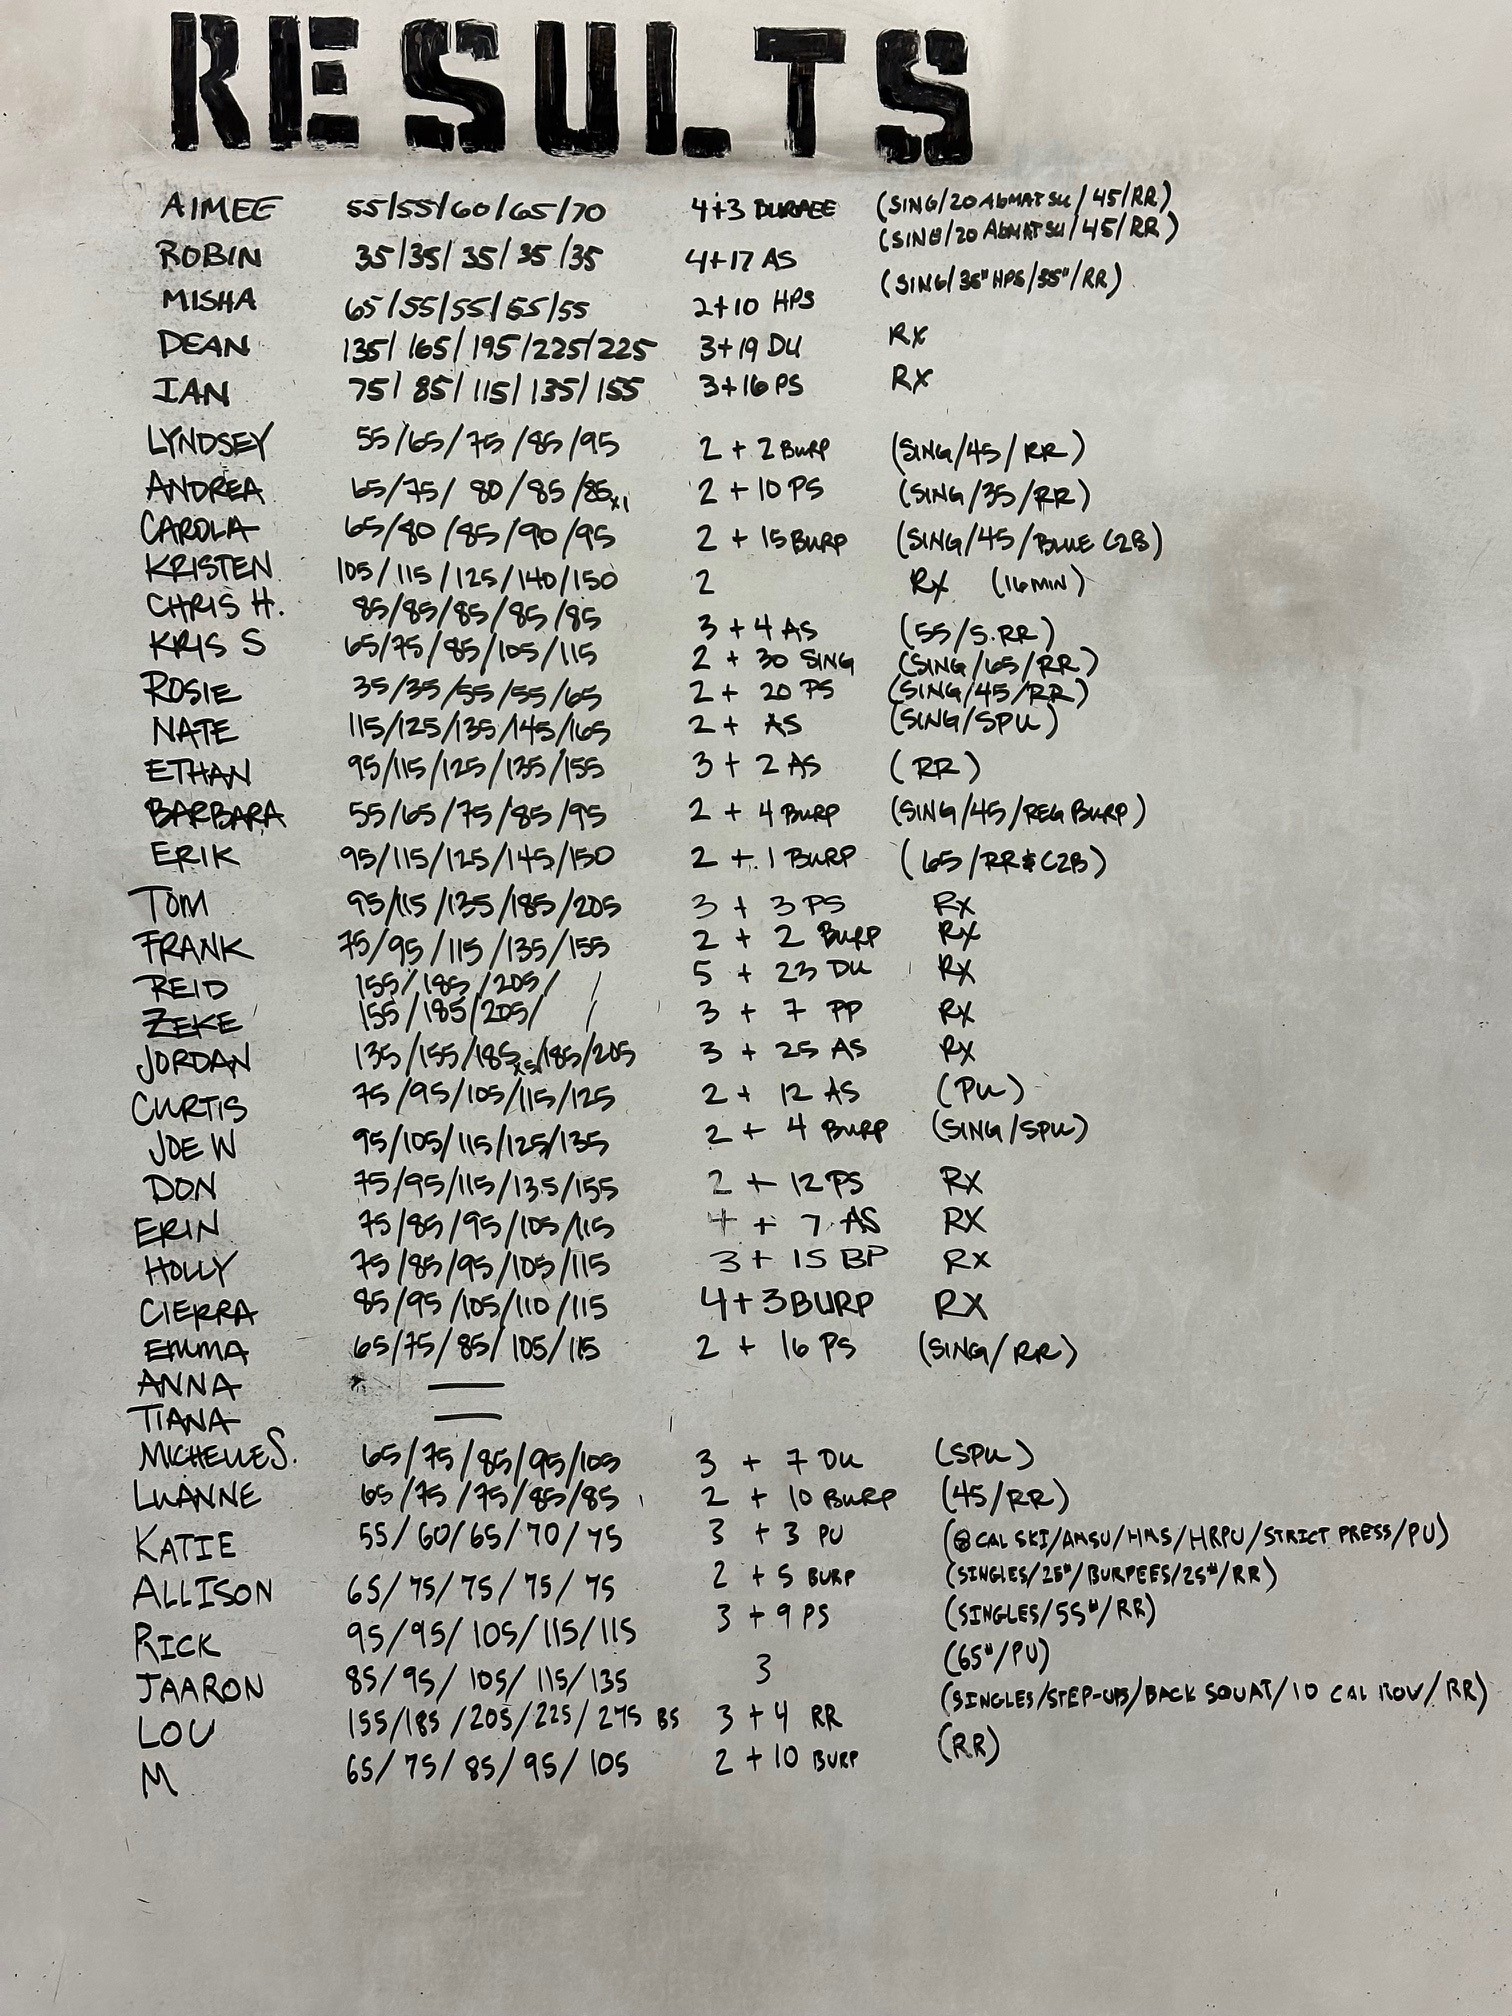 RESULTS
AIMEE 55/55/60/65/70 4+3 BURPEE (SING/20 ABMATSU/45/RR)
ROBIN 35/35/35/35/35 4+17 AS (SING/20 ABMATSU/45/RR)
MISHA 65/55/55/55/55 2+10 HPS (SING/35# HPS/35#/RR)
DEAN 135/165/195/225/225 3+19 DU RX
IAN 75/85/115/135/155 3+16 PS RX
LYNDSEY 55/65/75/85/95 2 + 2 BURP (SING/45/RR)
ANDREA 65/75/80/85/85x1 2 + 10 PS (SING/35/RR)
CAROLA 65/80/85/90/95 2 + 15 BURP (SING/45/BLUE C2B)
KRISTEN 105/115/125/140/150 2 RX (16 MIN)
CHRIS H. 85/85/85/85/85 3 + 4 AS (55/S.RR)
KRIS S 65/75/85/105/115 2 + 30 SING (SING/65/RR)
ROSIE 35/35/55/55/65 2 + 20 PS (SING/45/RR)
NATE 115/125/135/145/165 2 + AS (SING/SPU)
ETHAN 95/115/125/135/155 3 + 2 AS (RR)
BARBARA 55/65/75/85/95 2 + 4 BURP (SING/45/REG BURP)
ERIK 95/115/125/145/150 2 + 1 BURP (65/RR & C2B)
TOM 95/115/135/185/205 3 + 3 PS RX
FRANK 75/95/115/135/155 2 + 2 BURP RX
REID 155/185/205/ / 5 + 23 DU RX
ZEKE 155/185/205/ / 3 + 7 PP RX
JORDAN 135/155/185x5/185/205 3 + 25 AS RX
CURTIS 75/95/105/115/125 2 + 12 AS (PU)
JOE W 95/105/115/125/135 2 + 4 BURP (SING/SPU)
DON 75/95/115/135/155 2 + 12 PS RX
ERIN 75/85/95/105/115 4 + 7 AS RX
HOLLY 75/85/95/105/115 3 + 15 BP RX
CIERRA 85/95/105/110/115 4+3 BURP RX
EMMA 65/75/85/105/115 2 + 16 PS (SING/RR)
ANNA —
TIANA —
MICHELLE S. 65/75/85/95/105 3 + 7 DU (SPU)
LUANNE 65/75/75/85/85 2 + 10 BURP (45/RR)
KATIE 55/60/65/70/75 3 + 3 PU (8 CAL SKI/AMSU/HMS/HRPU/STRICT PRESS/PU)
ALLISON 65/75/75/75/75 2 + 5 BURP (SINGLES/25#/BURPEES/25#/RR)
RICK 95/95/105/115/115 3 + 9 PS (SINGLES/55#/RR)
JAARON 85/95/105/115/135 3 (65#/PU)
LOU 155/185/205/225/275 BS 3 + 4 RR (SINGLES/STEP-UPS/BACK SQUAT/10 CAL ROW/RR)
M 65/75/85/95/105 2 + 10 BURP (RR)